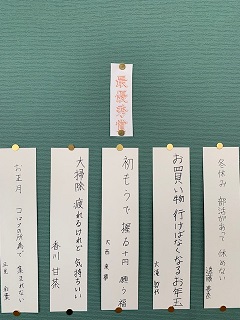 最優秀賞
冬休み 部活があって 休めない
お買い物 行けばなくなる お年玉
初もうで 握る十円 願う福
大掃除 疲れるけれど 気持ちいい
香川 甘菜
お正月 コロナの所為で 集まれない